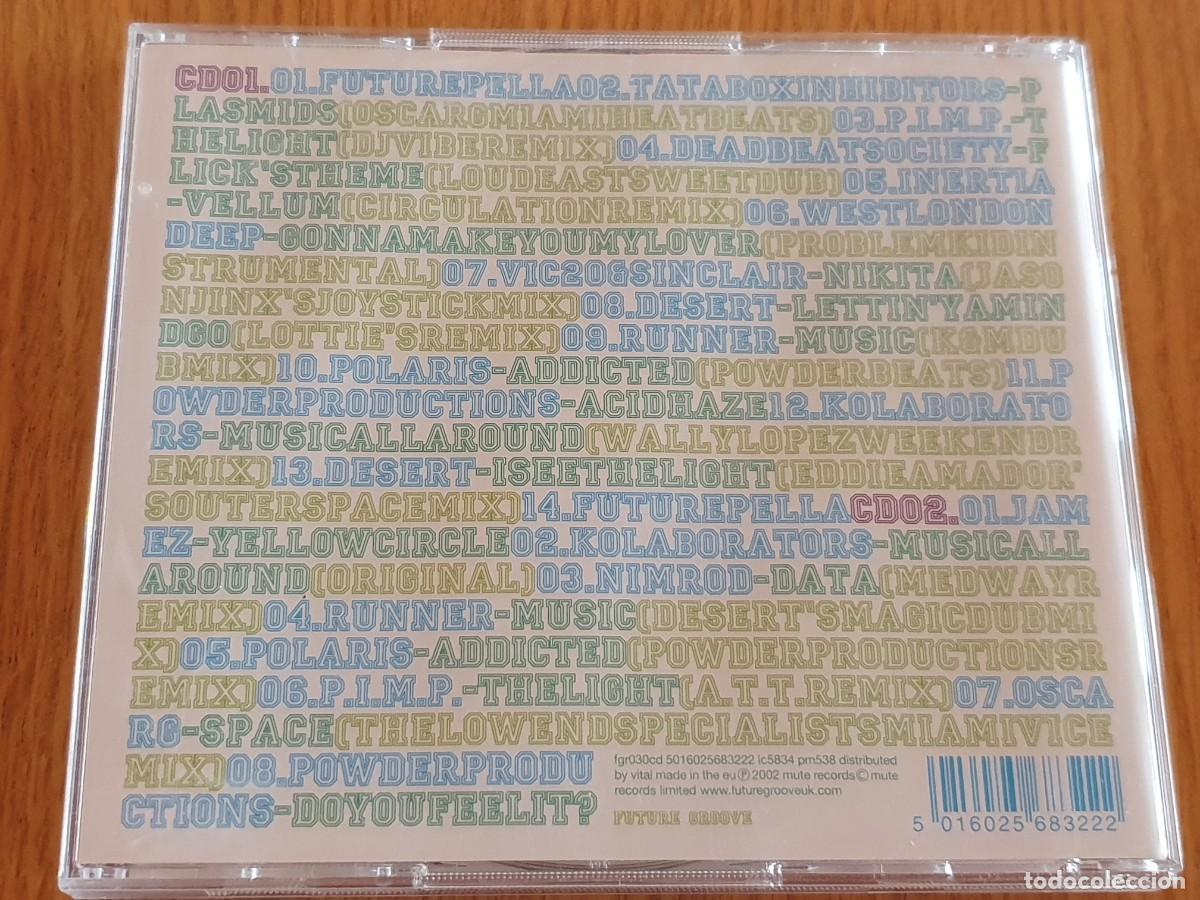 CD01.01.FUTUREPELLA02.TATABOXINHIBITORS-P
LASMIDS(OSCARGMIAMIHEATBEATS)03.P.I.M.P.-T
HELIGHT(DJVIBEREMIX)04.DEADBEATSOCIETY-F
LICK'STHEME(LOUDEASTSWEETDUB)05.INERTIA
-VELLUM(CIRCULATIONREMIX)06.WESTLONDON
DEEP-GONNAMAKEYOUMYLOVER(PROBLEMKIDIN
STRUMENTAL)07.VIC20&SINCLAIR-NIKITA(JASO
NJINX'SJOYSTICKMIX)08.DESERT-LETTIN'YAMIN
DGO(LOTTIE'SREMIX)09.RUNNER-MUSIC(K&MDU
BMIX)10.POLARIS-ADDICTED(POWDERBEATS)11.P
OWDERPRODUCTIONS-ACIDHAZE12.KOLABORATO
RS-MUSICALLAROUND(WALLYLOPEZWEEKENDR
EMIX)13.DESERT-ISEETHELIGHT(EDDIEAMADOR'
SOUTERSPACEMIX)14.FUTUREPELLACD02.01.JAM
EZ-YELLOWCIRCLE02.KOLABORATORS-MUSICALL
AROUND(ORIGINAL)03.NIMROD-DATA(MEDWAYR
EMIX)04.RUNNER-MUSIC(DESERT'SMAGICDUBMI
X)05.POLARIS-ADDICTED(POWDERPRODUCTIONSR
EMIX)06.P.I.M.P.-THELIGHT(A.T.T.REMIX)07.OSCA
RG-SPACE(THELOWENDSPECIALISTSMIAMIVICE
MIX)08.POWDERPRODU
CTIONS-DOYOUFEELIT?
fgr030cd 5016025683222 lc5834 pm538 distributed
by vital made in the eu Ⓟ 2002 mute records © mute
records limited www.futuregrooveuk.com
FUTURE GROOVE
5 016025 683222
todocoleccion